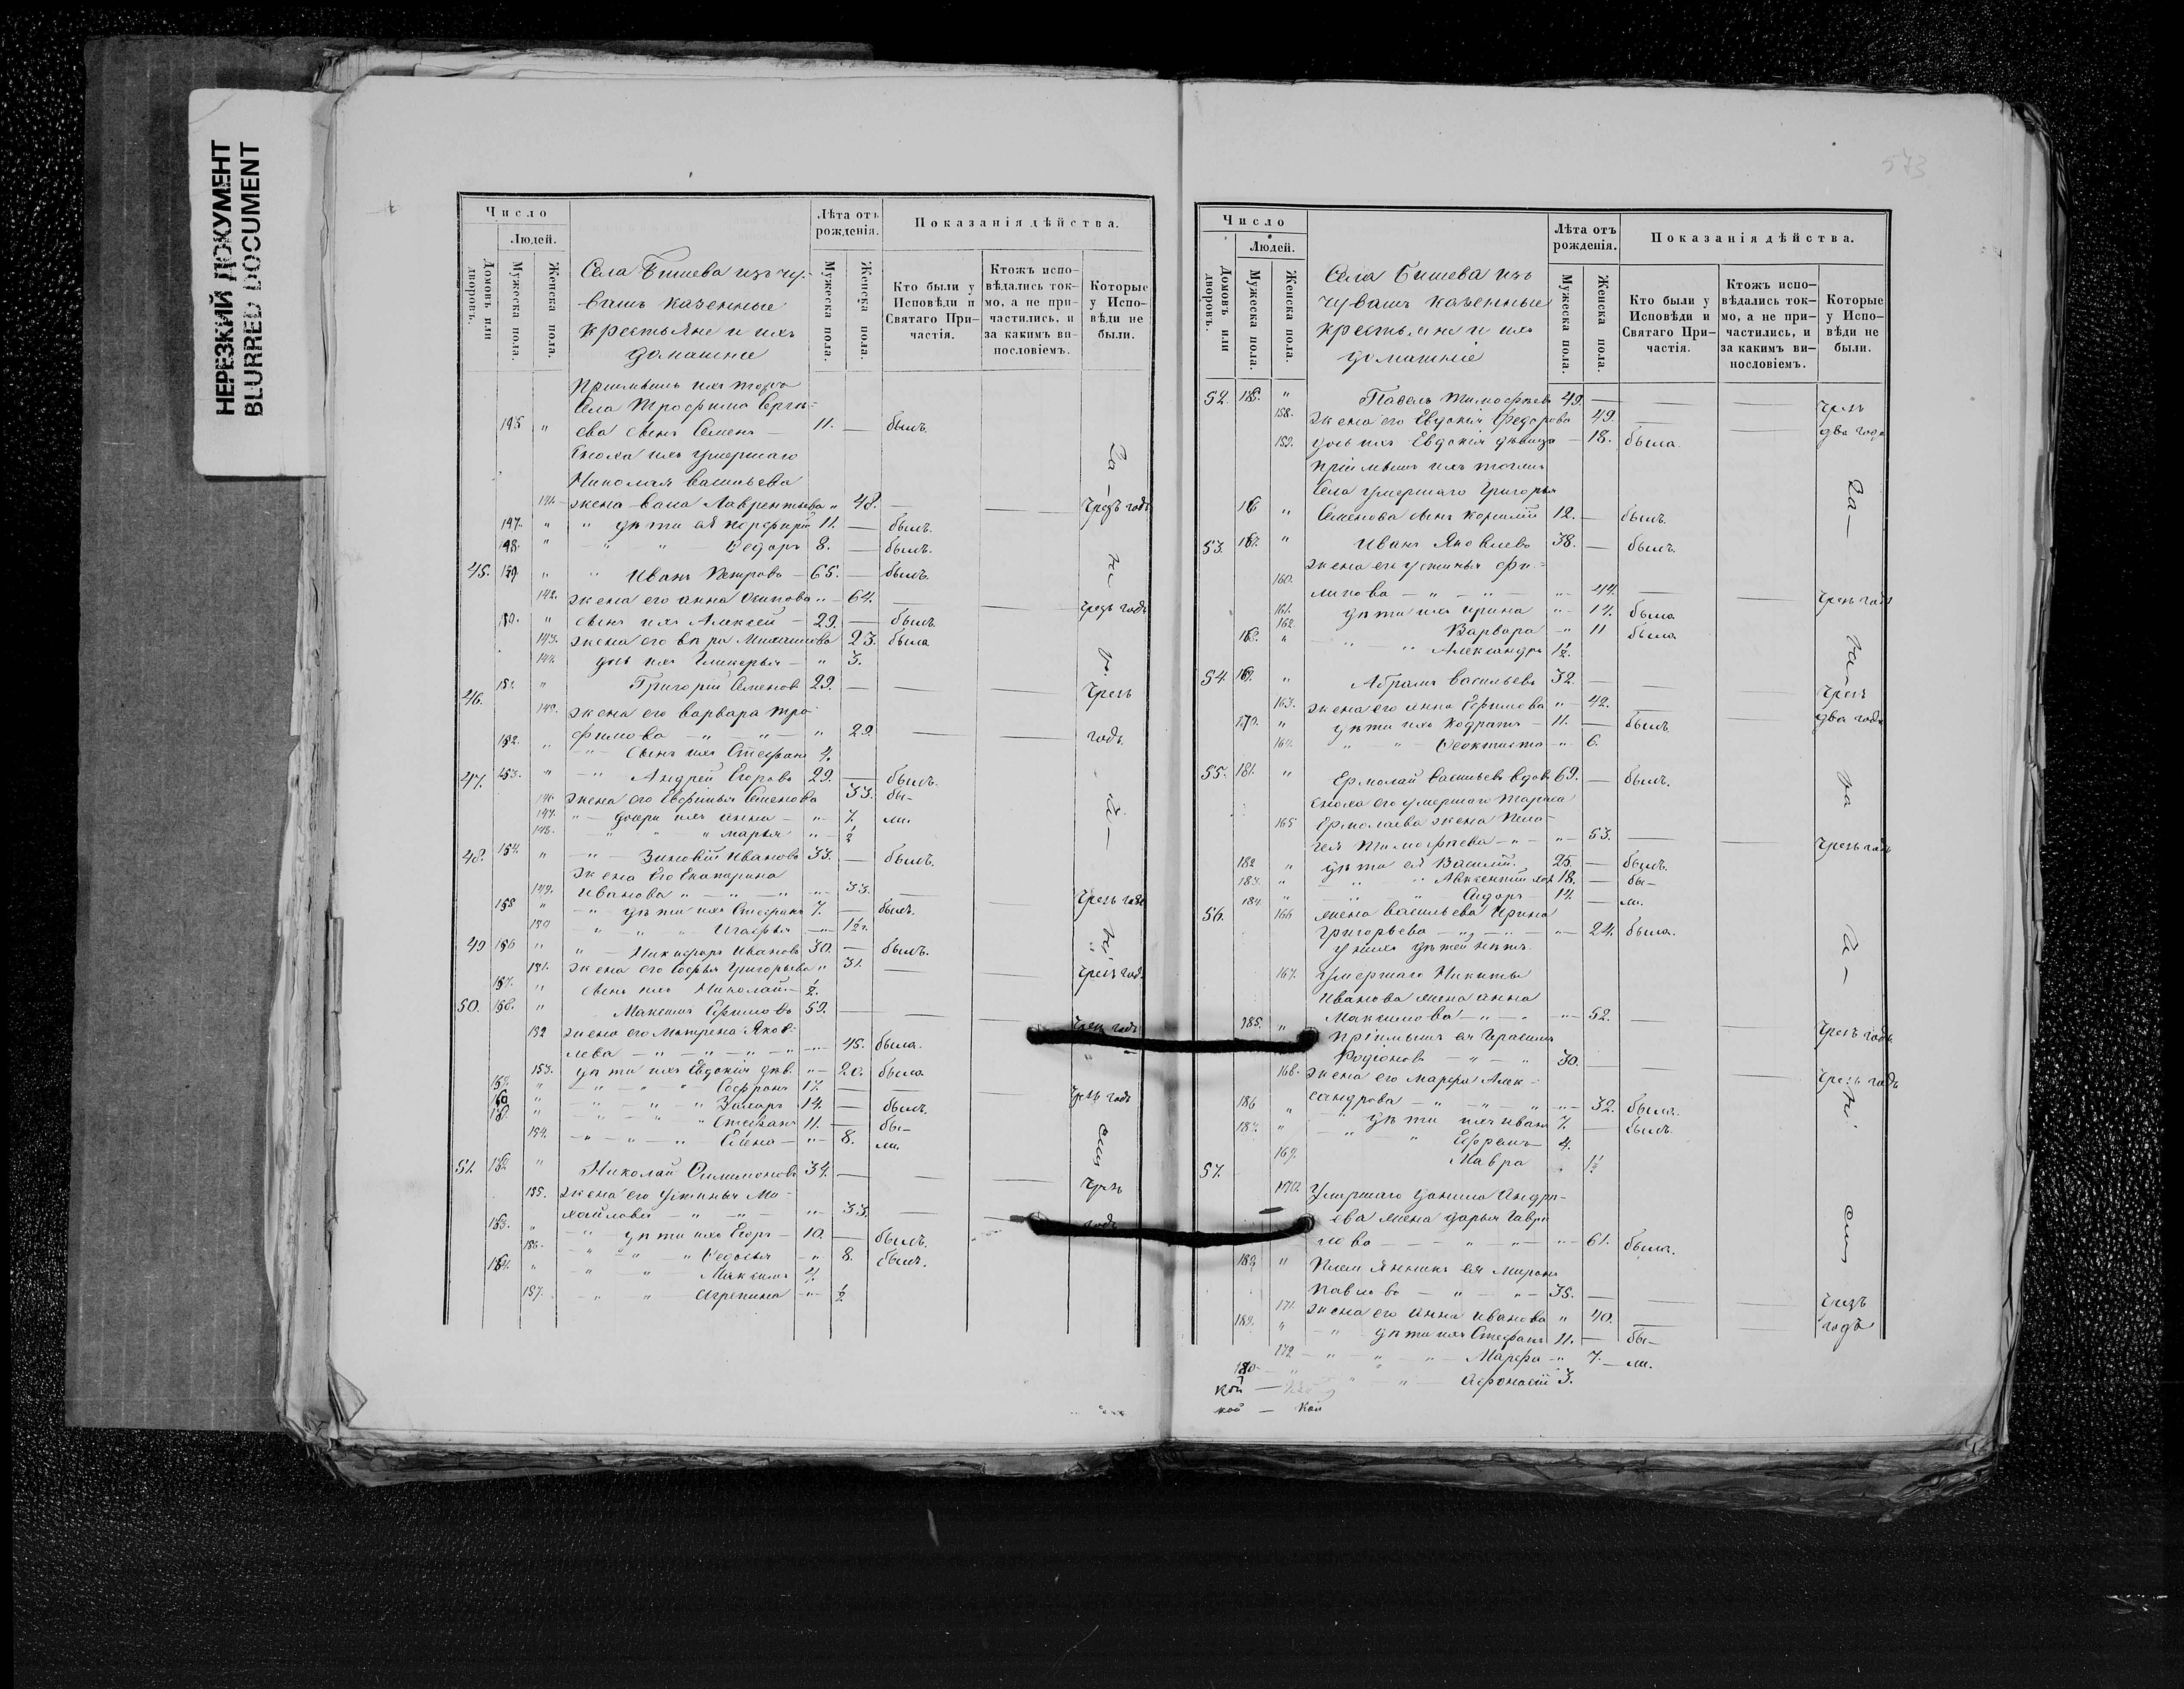 НЕРЕЗКИЙ ДОКУМЕНТ
BLURRED DOCUMENT
Число
Людей.
Домовъ или дворовъ.
Мужеска пола.
Женска пола.
Села Бишева изъ чу-
вашъ казенные
крестьяне и ихъ
домашніе
Лѣта отъ рожденія.
Мужеска пола.
Женска пола.
Показанія дѣйства.
Кто были у Исповѣди и Святаго При-частія.
Ктожъ испо-вѣдались ток-мо, а не при-частились, и за какимъ ви-нословіемъ.
Которые у Испо-вѣди не были.
Села Трофима Серге-
ева сынъ Семенъ — 11. — былъ.
Сноха ихъ умершаго
Николая Васильева
жена Лаврентьева „ 48. — — чрезъ годъ
147. „ „ дѣти ея Порфирій 11. — былъ.
148. „ „ „ Ѳедоръ 8. — былъ.
45. „ „ Иванъ Петровъ — 65. — былъ.
142. жена его Анна Осипова „ 64. — — чрезъ годъ
150. „ сынъ ихъ Алексей — 29. — былъ.
143. жена его Вѣра 23. была
144. дочь ихъ Гликерья — „ 3.
46. 151. „ Григорій Семеновъ 29. — — — чрезъ
145. жена его Варвара Тро-
фимова — „ — „ — „ 29 — — годъ.
152. „ „ сынъ ихъ Стефанъ 4.
47. 153. „ „ Андрей Егоровъ 29. — былъ.
146. жена его Евфимья Семенова 33. бы-
147. „ — дочери ихъ Анна — „ 7. ли.
148. „ „ „ Марья „ ½
48. 154. „ „ Зиновій Ивановъ 33. — былъ.
жена его Екатерина
149. Иванова „ — „ — „ „ 33. — — чрезъ годъ
155 „ „ дѣти ихъ Стефанъ 7. — былъ.
150 „ „ „ Агафья — „ 1½.
49 156 „ „ Никифоръ Ивановъ 30. — былъ.
151. жена его Софья Григорьева „ 31. — — чрезъ годъ
157. „ сынъ ихъ Николай — ½.
50. 158. „ Максимъ Ефимовъ 59. — — — чрезъ годъ
152 жена его Матрена Яков-
лева — „ — „ — „ — „ 45. была.
153. дѣти ихъ Евдокія дѣв. „ 20. была.
„ „ „ „ Софронъ 17. — — — чрезъ годъ
160 „ „ „ „ Захаръ 14. — былъ.
„ „ „ „ Стефанъ 11. — бы-
154. „ „ „ Елена — „ 8. ли.
51. 162 „ Николай Филимоновъ 34. — — — чрезъ
155. жена его Устинья Ми-
хайлова — „ — „ — „ 33. — — годъ
163. „ „ дѣти ихъ Егоръ — 10. — былъ.
156. „ „ „ Ѳедосья „ 8. былъ.
164. „ „ „ Максимъ 4.
157. „ „ Агрепина „ ½
573
Число
Людей.
Домовъ или дворовъ.
Мужеска пола.
Женска пола.
Села Бишева изъ
чувашъ казенные
крестьяне и ихъ
домашніе
Лѣта отъ рожденія.
Мужеска пола.
Женска пола.
Показанія дѣйства.
Кто были у Исповѣди и Святаго При-частія.
Ктожъ испо-вѣдались ток-мо, а не при-частились, и за какимъ ви-нословіемъ.
Которые у Испо-вѣди не были.
52. „ Павелъ Тимофеевъ 49. — — — чрезъ
158. жена его Евдокія Федорова 49. — — два года
159. дочь ихъ Евдокія дѣвица — 18. была.
Пріимышъ ихъ тогожъ
Села умершаго Григорья
„ Семенова сынъ Корнилій 12. — былъ.
53. „ Иванъ Яковлевъ 38. — былъ.
жена его Устинья Фи-
160. липова — „ — „ — „ 44. — — чрезъ годъ
161. дѣти ихъ Ирина „ 14. была
162. Варвара „ 11 была
„ „ „ Александръ 1½.
54. „ Абрамъ Васильевъ 32. — — — чрезъ
163. жена его Анна Ефимова „ 42. — — два года
170. „ дѣти ихъ Кодратъ — 11. — былъ.
164. „ „ Ѳеоктиста „ 6.
55. 181. „ Ермолай Васильевъ вдовъ 69. — былъ.
Сноха его умершаго Тараса
165 Ермолаева жена Пела-
гея Тимофеева „ — „ „ 53. — — чрезъ годъ
182 „ дѣти ея Василій. 25. — былъ.
183. „ „ „ Авксентій 18. — бы-
184 „ „ „ Сидоръ 14. — ли.
56. 166 жена Васильева Ирина
Григорьева — „ — „ „ 24. была.
у нихъ дѣтей нѣтъ.
167. Умершаго Никиты
Иванова жена Анна
Максимова „ — „ „ 52. — — чрезъ годъ
185. „ Пріимышъ ея Герасимъ
Родіоновъ — „ — „ 30. — — чрезъ годъ
168. жена его Марфа Алек-
сандрова — „ „ „ 32. была.
186 „ „ дѣти ихъ Иванъ 7. — былъ.
187. „ „ „ Ефремъ 4.
169. Мавра 1½
57. 170. Умершаго Данила Андре-
ева жена Дарья Гаври-
лова — „ — „ „ 61. была.
„ Племянникъ ея Миронъ
Павловъ — „ — „ 35. — — чрезъ
171. жена его Анна Иванова „ 40. — — годъ
189. „ „ дѣти ихъ Стефанъ 11. — бы-
172 „ „ „ Марфа „ 7. — ли.
„ „ „ Афонасій 3.